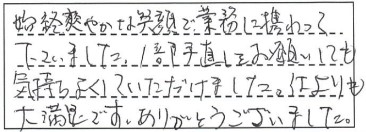 始終爽やかな笑顔で業務に携わって
下さいました。1部手直しをお願いしても
気持ちよくしていただけました。何よりも
大満足です。ありがとうございました。